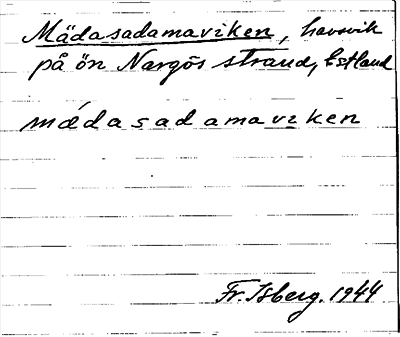 Mädasadamaviken, havsvik
på ön Nargös strand, Estland
mǽdasadamaviken
Fr. Isberg. 1944